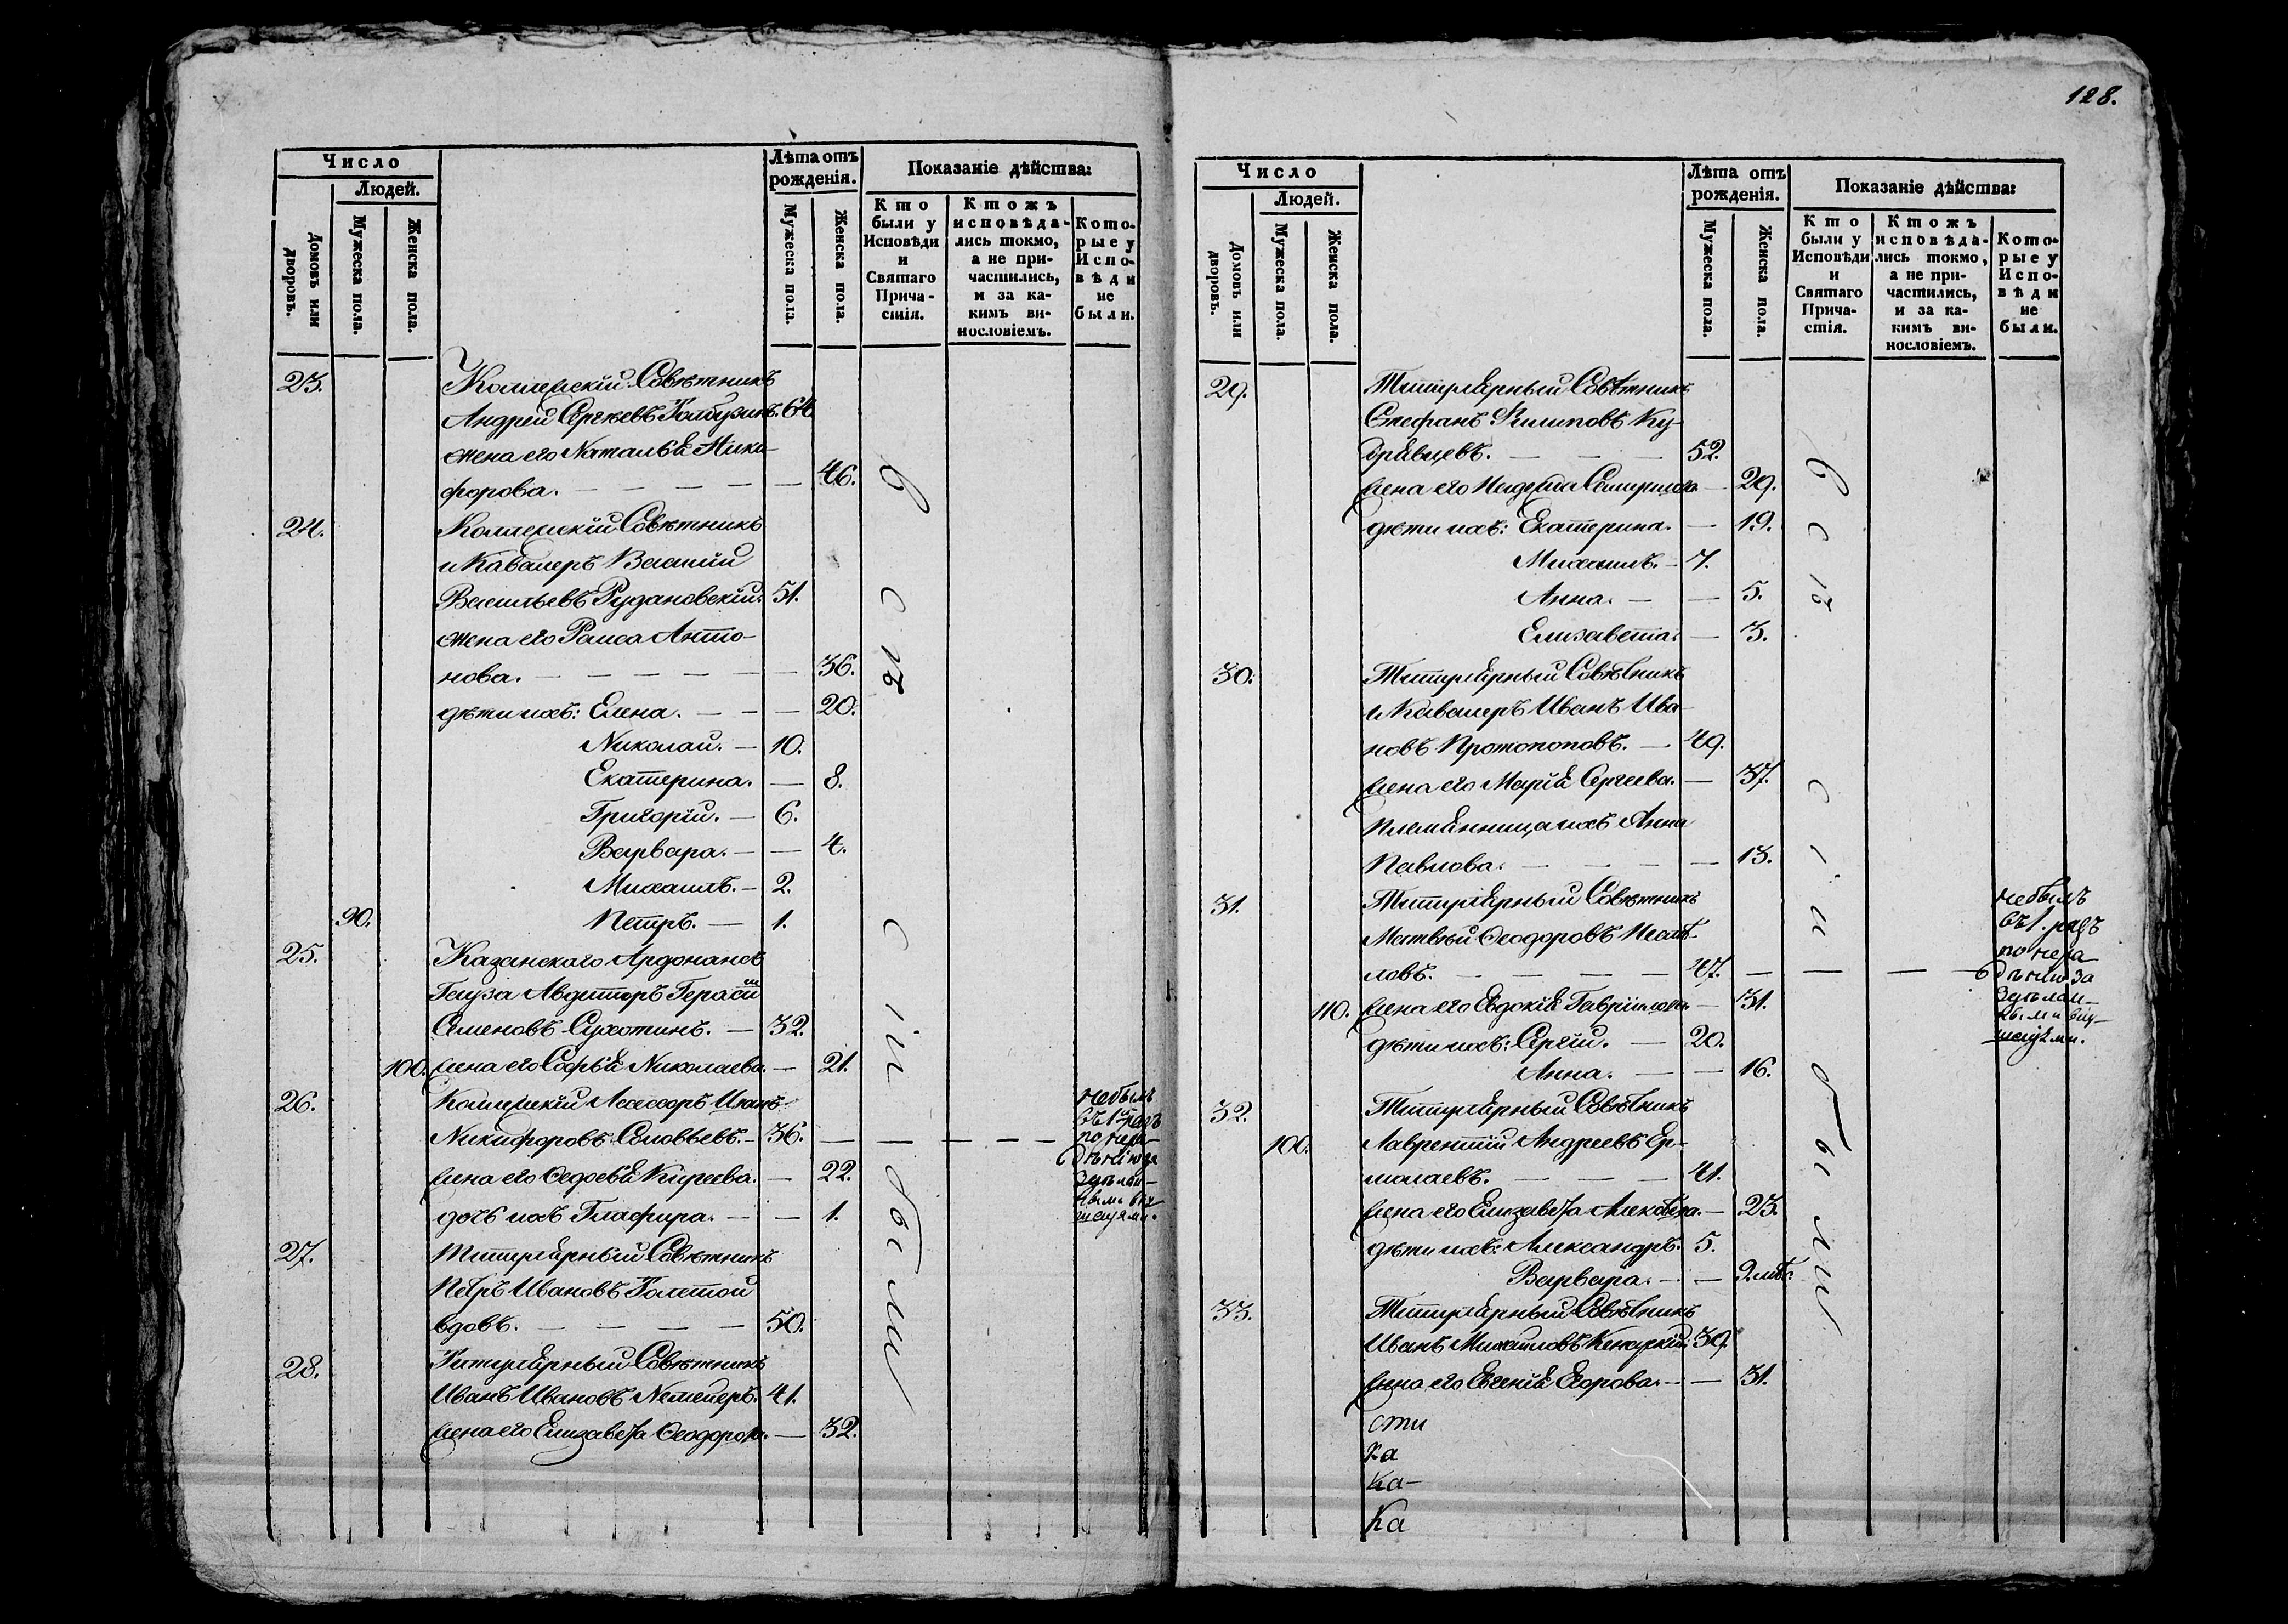 128.
Число
Людей.
Домовъ или дворовъ.
Мужеска пола.
Женска пола.
Лѣта отъ рожденія.
Мужеска пола.
Женска пола.
Показаніе дѣйства:
Кто были у Исповѣди и Святаго Причастія.
Ктожъ исповѣдались токмо, а не причастились, и за какимъ винословіемъ.
Которые у Исповѣди не были.
23. Коллежскій Совѣтникъ
Андрей Сергѣевъ 64.
жена его Наталья Ники-
форова. — 46.
24. Коллежскій Совѣтникъ
и Кавалеръ Василій
Васильевъ Рудановскій. 51.
жена его Раиса Анто-
нова. — 36.
дѣти ихъ: Елена. — 20.
Николай. — 10.
Екатерина. — 8.
Григорій. — 6.
Варвара. — 4.
Михаилъ. — 2.
90. Петръ. — 1.
25. Казанскаго Ордонансъ
Гауза Авдиторъ Герасим
Семеновъ Сухотинъ. — 32.
100. жена его Софья Николаева. — 21.
26. Коллежскій Ассесоръ Иванъ
Никифоровъ Соловьевъ. — 36. —
жена его Федосья Киреева. — 22.
дочь ихъ Глафира. — 1.
небылъ
въ 1й разъ
по нера-
дѣнію за
27. Титулярный Совѣтникъ
Петръ Ивановъ Толстой
вдовъ. — 50.
28. Титулярный Совѣтникъ
Иванъ Ивановъ Немейеръ. 41.
жена его Елизавета Феодорова. — 32.
всѣ
всѣ сіи были
Число
Людей.
Домовъ или дворовъ.
Мужеска пола.
Женска пола.
Лѣта отъ рожденія.
Мужеска пола.
Женска пола.
Показаніе дѣйства:
Кто были у Исповѣди и Святаго Причастія.
Ктожъ исповѣдались токмо, а не причастились, и за какимъ винословіемъ.
Которые у Исповѣди не были.
29. Титулярный Совѣтникъ
Стефанъ Филиповъ Ку-
дрявцевъ. — 52.
жена его — 29.
дѣти ихъ: Екатерина. — 19.
Михаилъ. — 7.
Анна. — 5.
Елизавета. — 3.
30. Титулярный Совѣтникъ
и Кавалеръ Иванъ Ива-
новъ Протопоповъ. — 49.
жена его Марія Сергеева. — 37.
племянница ихъ Анна
Павлова. — 13.
31. Титулярный Совѣтникъ
Матвѣй Феодоровъ
ловъ. — 47. —
110. жена его Евдокія Гавріилова. — 31.
дѣти ихъ: Сергій. — 20.
Анна. — 16.
небылъ
въ 1. разъ
по нера-
дѣнію за
32. Титулярный Совѣтникъ
100. Лаврентій Андреевъ Ер-
молаевъ. — 41.
жена его Елизавета — 23.
дѣти ихъ: Александръ. 5.
Варвара. —
33. Титулярный Совѣтникъ
Иванъ Михайловъ 39.
жена его Евгенія Егорова. — 31.
сти
ка
ка-
ка